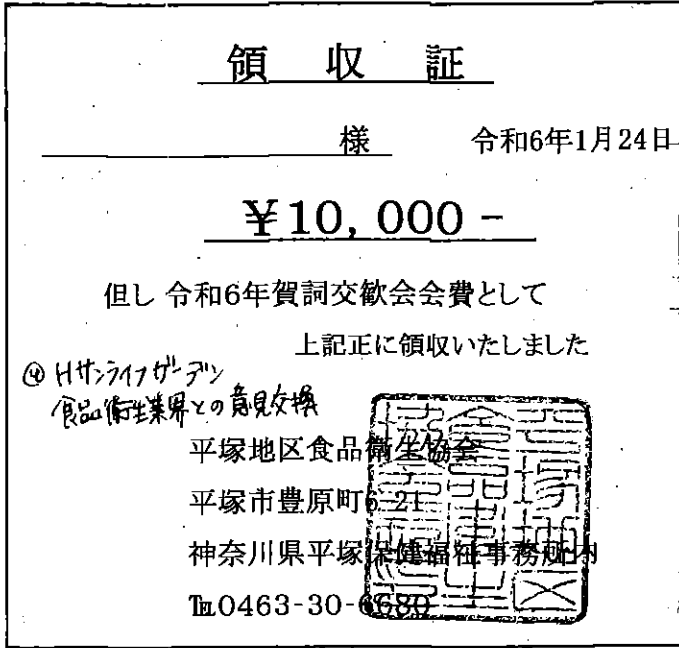 領収証
様 令和6年1月24日
¥10,000-
但し 令和6年賀詞交歓会会費として
上記正に領収いたしました
④ Hサンライフガーデン
食品衛生業界との意見交換
平塚地区食品衛生協会
平塚市豊原町6-21
神奈川県平塚保健福祉事務所内
℡0463-30-6680